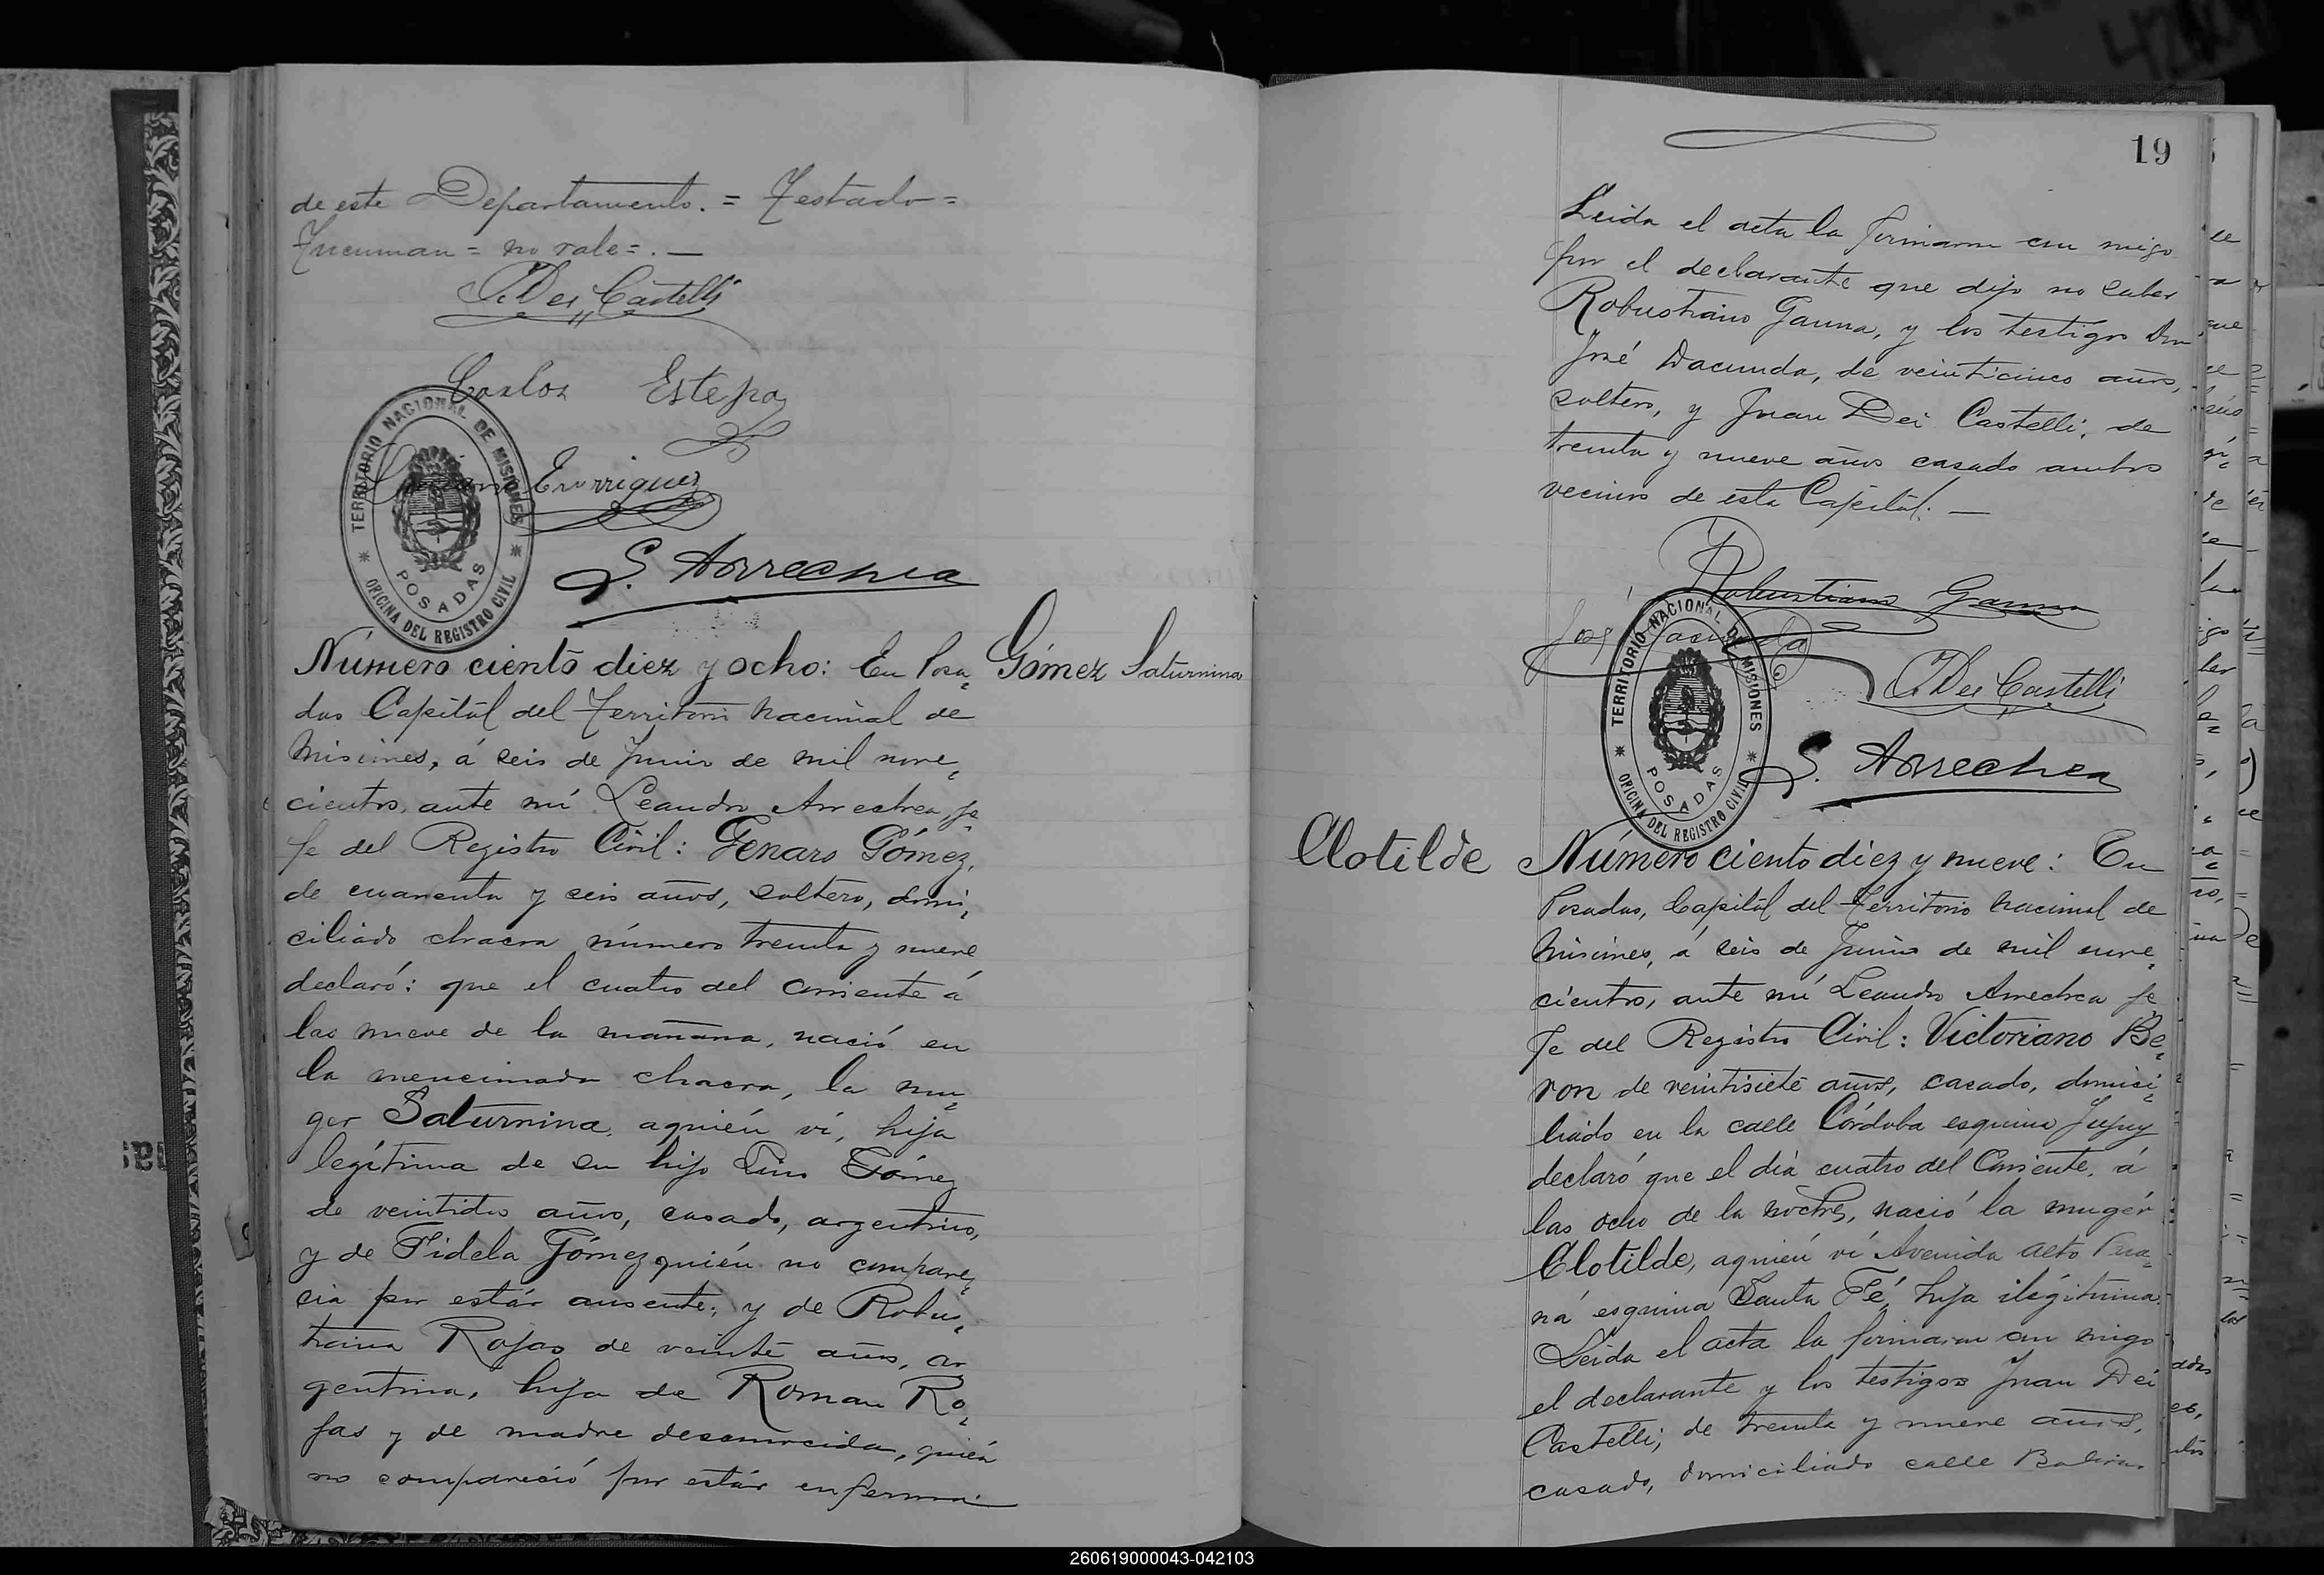 de este Departamento. = Testado =
Tucuman = no vale = . —
J. Dei Castelli
Carlos Estepa
Enrriquez
TERRITORIO NACIONAL DE MISIONES
POSADAS
OFICINA DEL REGISTRO CIVIL
S. Arrechea
Número ciento diez y ocho: En Posa= Gómez Saturnina
das Capital del Territorio Nacional de
Misiones, á seis de Junio de mil nove=
cientos, ante mí Leandro Arrechea, Je=
fe del Registro Civil: Genaro Gómez,
de cuarenta y seis años, soltero, domi=
ciliado chacra número treinta y nueve
declaró: que el cuatro del corriente á
las nueve de la mañana, nació en
la mencionada chacra, la mu=
ger Saturnina, aquién ví, hija
legítima de su hijo Gómez
de veintidos años, casado, argentino,
y de Fidela Gómez quién no compare=
cia por estár ausente; y de Robus=
tiana Rojas de veinte años, ar
gentina, hija de Roman Ro=
jas y de madre desconocida, quién
no compareció por estár enferma
19
Leida el acta la firmaron con migo
por el declarante que dijo no saber
Robustiano Gauna, y los testigos Don
José Dacunda, de veinticinco años,
soltero, y Juan Dei Castelli, de
treinta y nueve años casado ambos
vecinos de esta Capital. —
Robustiano Gauna
José Dacunda
J. Dei Castelli
TERRITORIO NACIONAL DE MISIONES
POSADAS
OFICINA DEL REGISTRO CIVIL
S. Arrechea
Clotilde Número ciento diez y nueve: En
Posadas, Capital del Territorio Nacional de
Misiones, á seis de Junio de mil nove=
cientos, ante mí Leandro Arrechea Je=
fe del Registro Civil: Victoriano Be=
ron de veintisiete años, casado, domici=
liado en la calle Córdoba esquina Jujuy
declaró que el día cuatro del Corriente, á
las ocho de la noche, nació la mugér
Clotilde, aquién ví Avenida Alto Para=
ná esquina Santa Fé, hija ilégitima.
Leida el acta la firmaron con migo
el declarante y los testigos Juan Dei
Castelli, de treinta y nueve años,
casado, domiciliado calle Bolivar
260619000043-042103